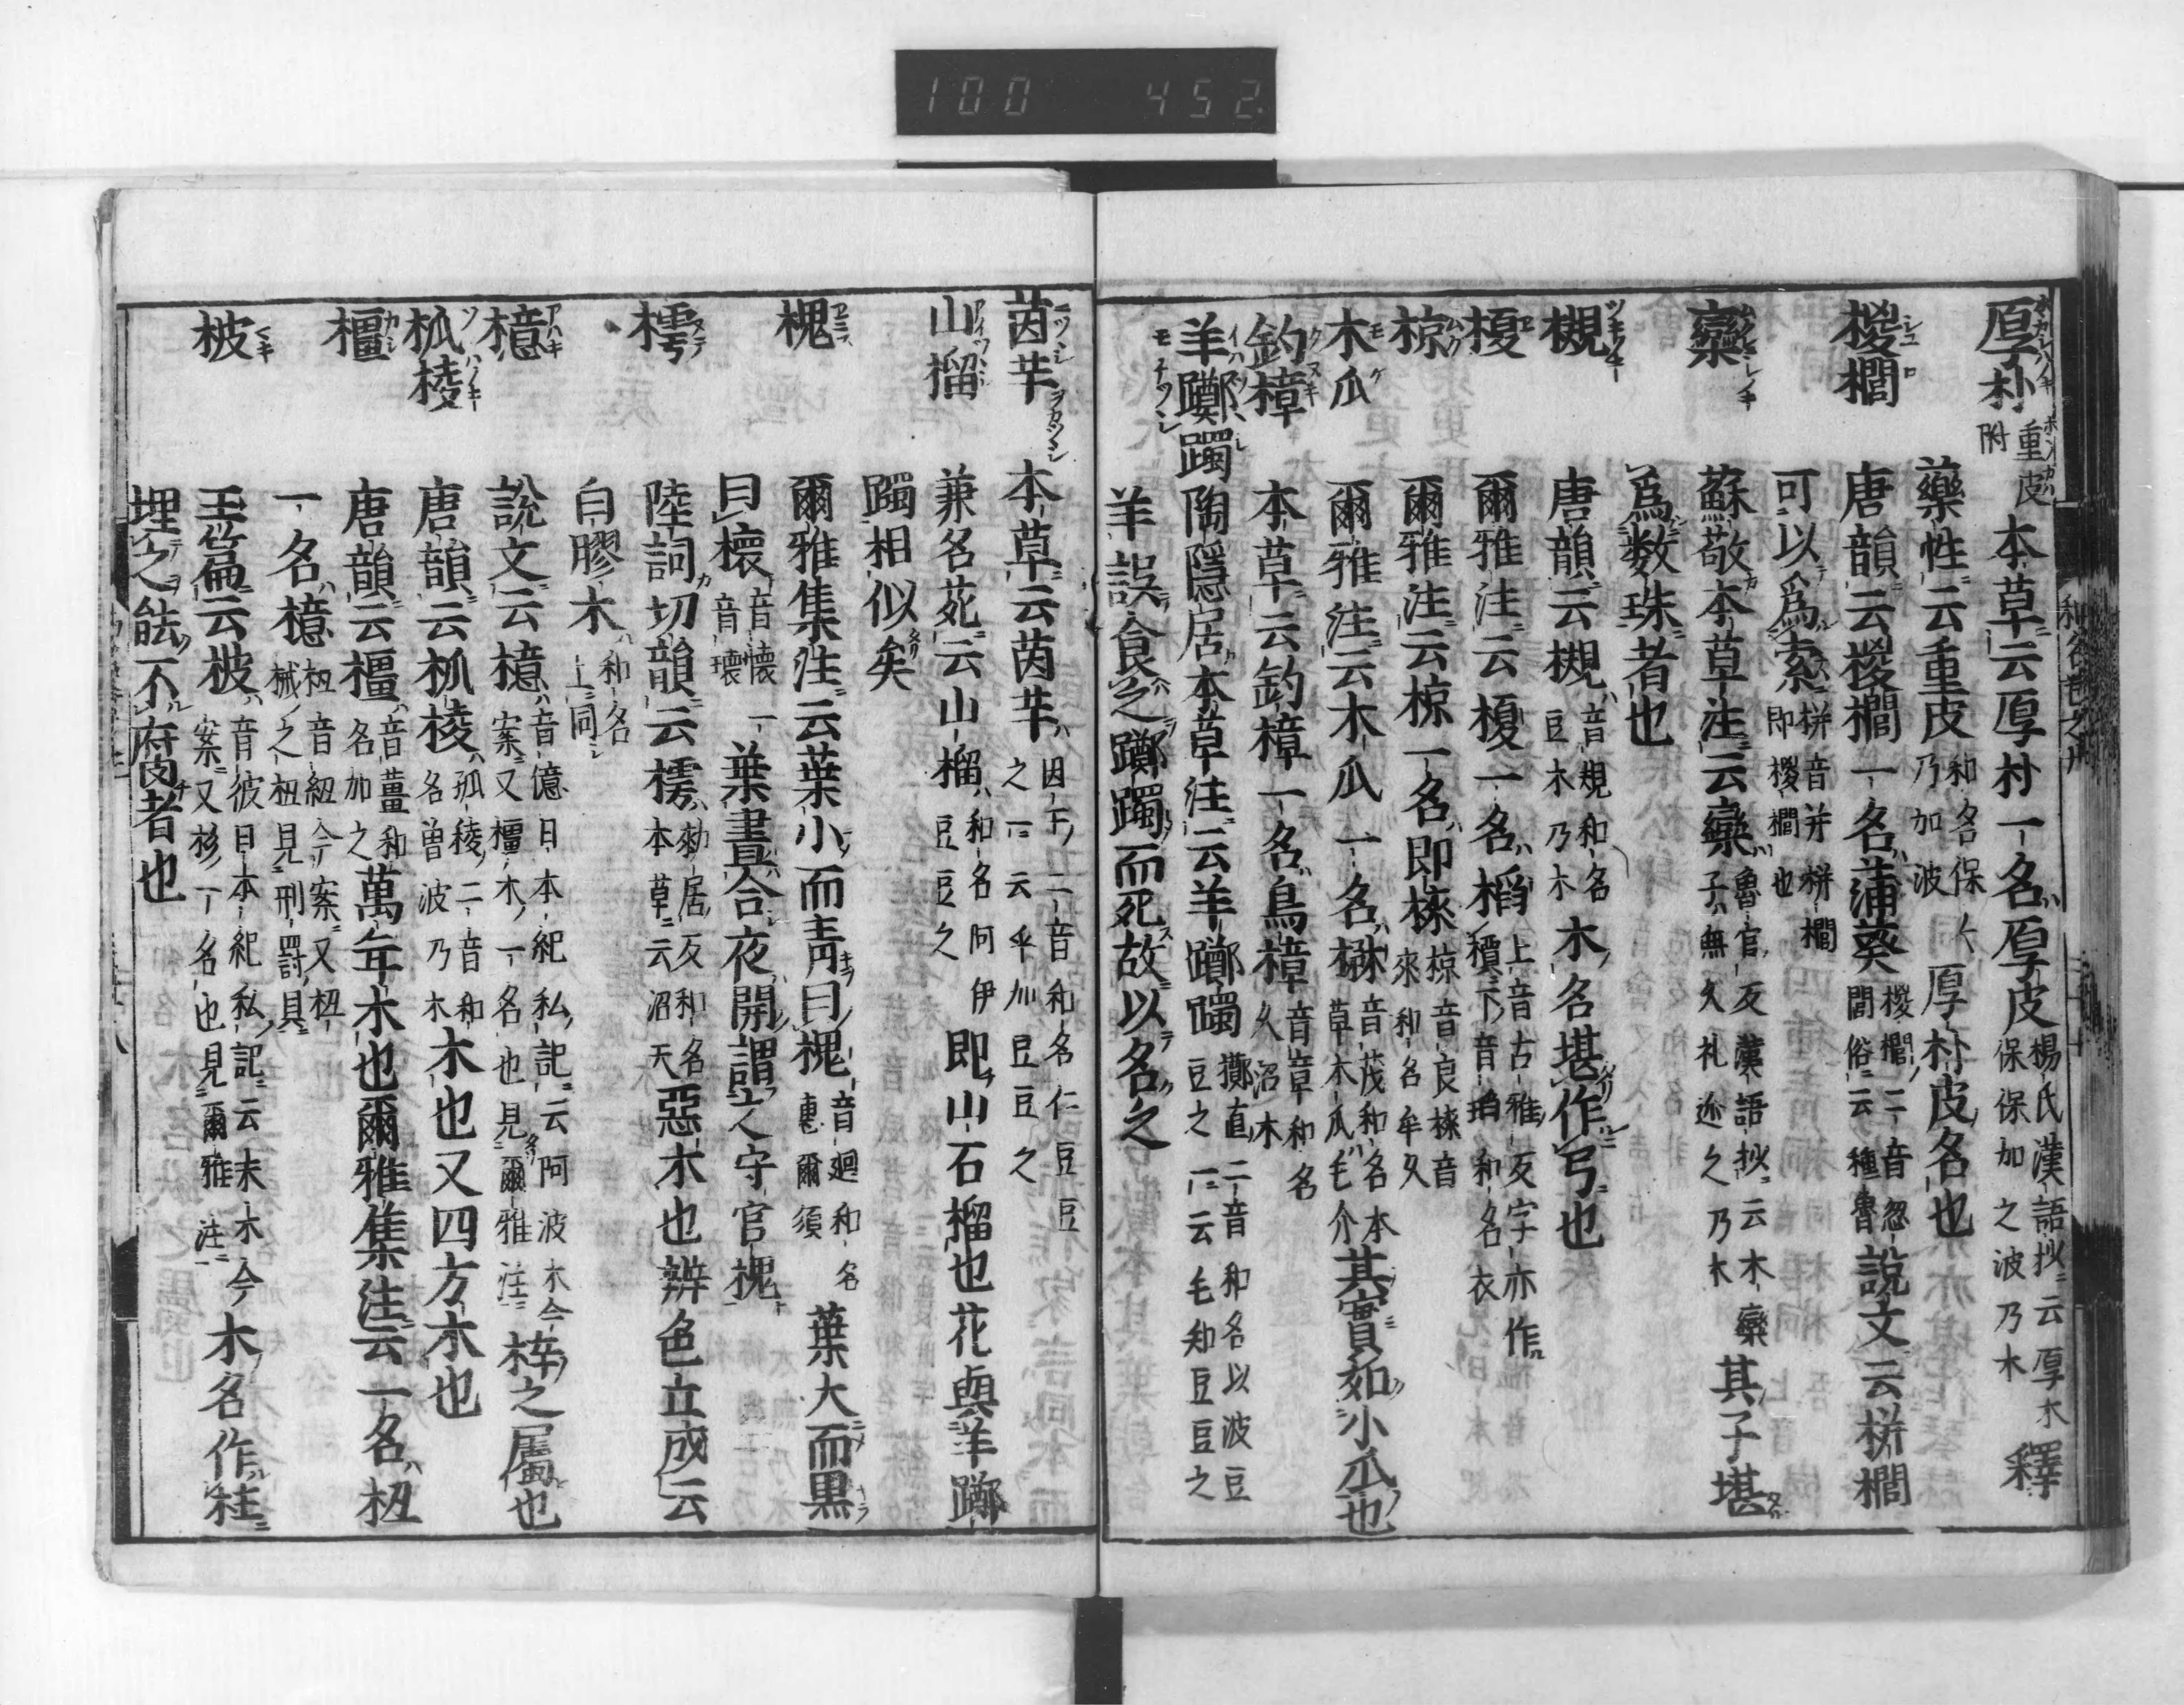 100 452
厚朴 重皮附 本草云厚朴一名厚皮 楊氏漢語抄云厚木保保加之波乃木 釋
藥性云重皮 和名保乃加波 厚朴皮名也
椶櫚 唐韻云椶櫚一名蒲葵 椶櫚二音忽閭俗云種魯 說文云栟櫚
可以爲索 栟音并栟櫚即椶櫚也
欒 蘇敬本草注云欒 魯官反漢語抄云木欒子無久礼迩之乃木 其子堪
爲数珠者也
槻 唐韻云槻 音規和名豆木乃木 木名堪作弓也
榎 爾雅注云榎一名槄 上音古雅反字亦作檟下音瑫和名衣
椋 爾雅注云椋一名即棶 椋音良棶音來和名牟久
木瓜 爾雅注云木瓜一名楙 音茂和名本草木瓜毛介 其實如小瓜也
釣樟 本草云釣樟一名烏樟 音章和名久沼木
羊躑躅 陶隱居本草注云羊躑躅 擲直二音和名以波豆豆之一云毛知豆豆之
羊誤食之躑躅而死故以名之
茵芋 本草云茵芋 因于二音和名仁豆豆之一云乎加豆豆之
山榴 兼名苑云山榴 和名阿伊豆豆之 即山石榴也花與羊躑
躅相似矣
槐 爾雅集注云葉小而青曰槐 音廻和名惠爾須 葉大而黒
曰櫰 音懷一音瓌 葉晝合夜開謂之守官槐
樗 陸詞切韻云樗 勅居反和名本草云沼天 惡木也辨色立成云
白膠木 和名上同
檍 說文云檍 音億日本紀私記云阿波木今案又橿木一名也見爾雅注 梓之屬也
柧棱 唐韻云柧棱 孤稜二音和名曽波乃木 木也又四方木也
橿 唐韻云橿 音薑和名加之 萬年木也爾雅集注云一名杻
一名檍 杻音紐今案又杻械之杻見刑罸具
柀 玉篇云柀 音彼日本紀私記云末木今案又杉一名也見爾雅注 木名作柱
埋之能不腐者也